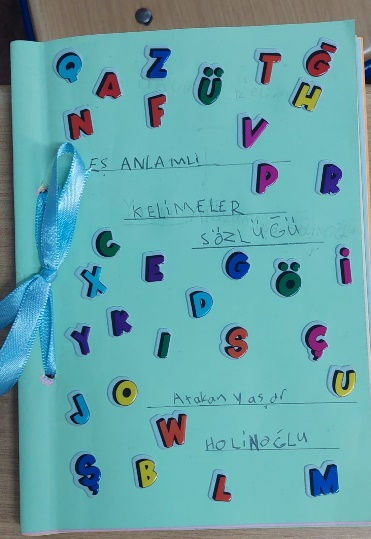 Q A Z Ü T Ğ
N F V H
EŞ ANLAMLI
P R
KELİMELER
SÖZLÜĞÜ
C X E G Ö İ
Y K I D S Ç
J O U
Arakan Yaşar
W
HOLİNOĞLU
Ş B L M